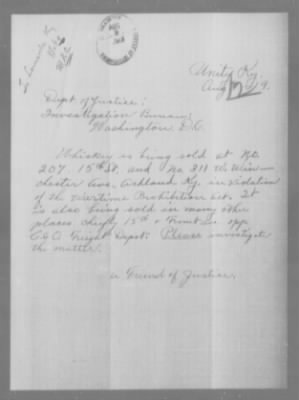 Unity Ky.
Aug 12, 19.
Dept of Justice;
Investigation Bureau;
Washington D.C.
Whiskey is being sold at No.
207 15th St, and No 311 W. Win-
chester Ave, Ashland Ky, in violation
of the wartime Prohibition act. It
is also being sold in many other
places chiefly 15th & Front sts opp
C&O. Freight Depot. Please investigate
the matter.
a Friend of Justice.